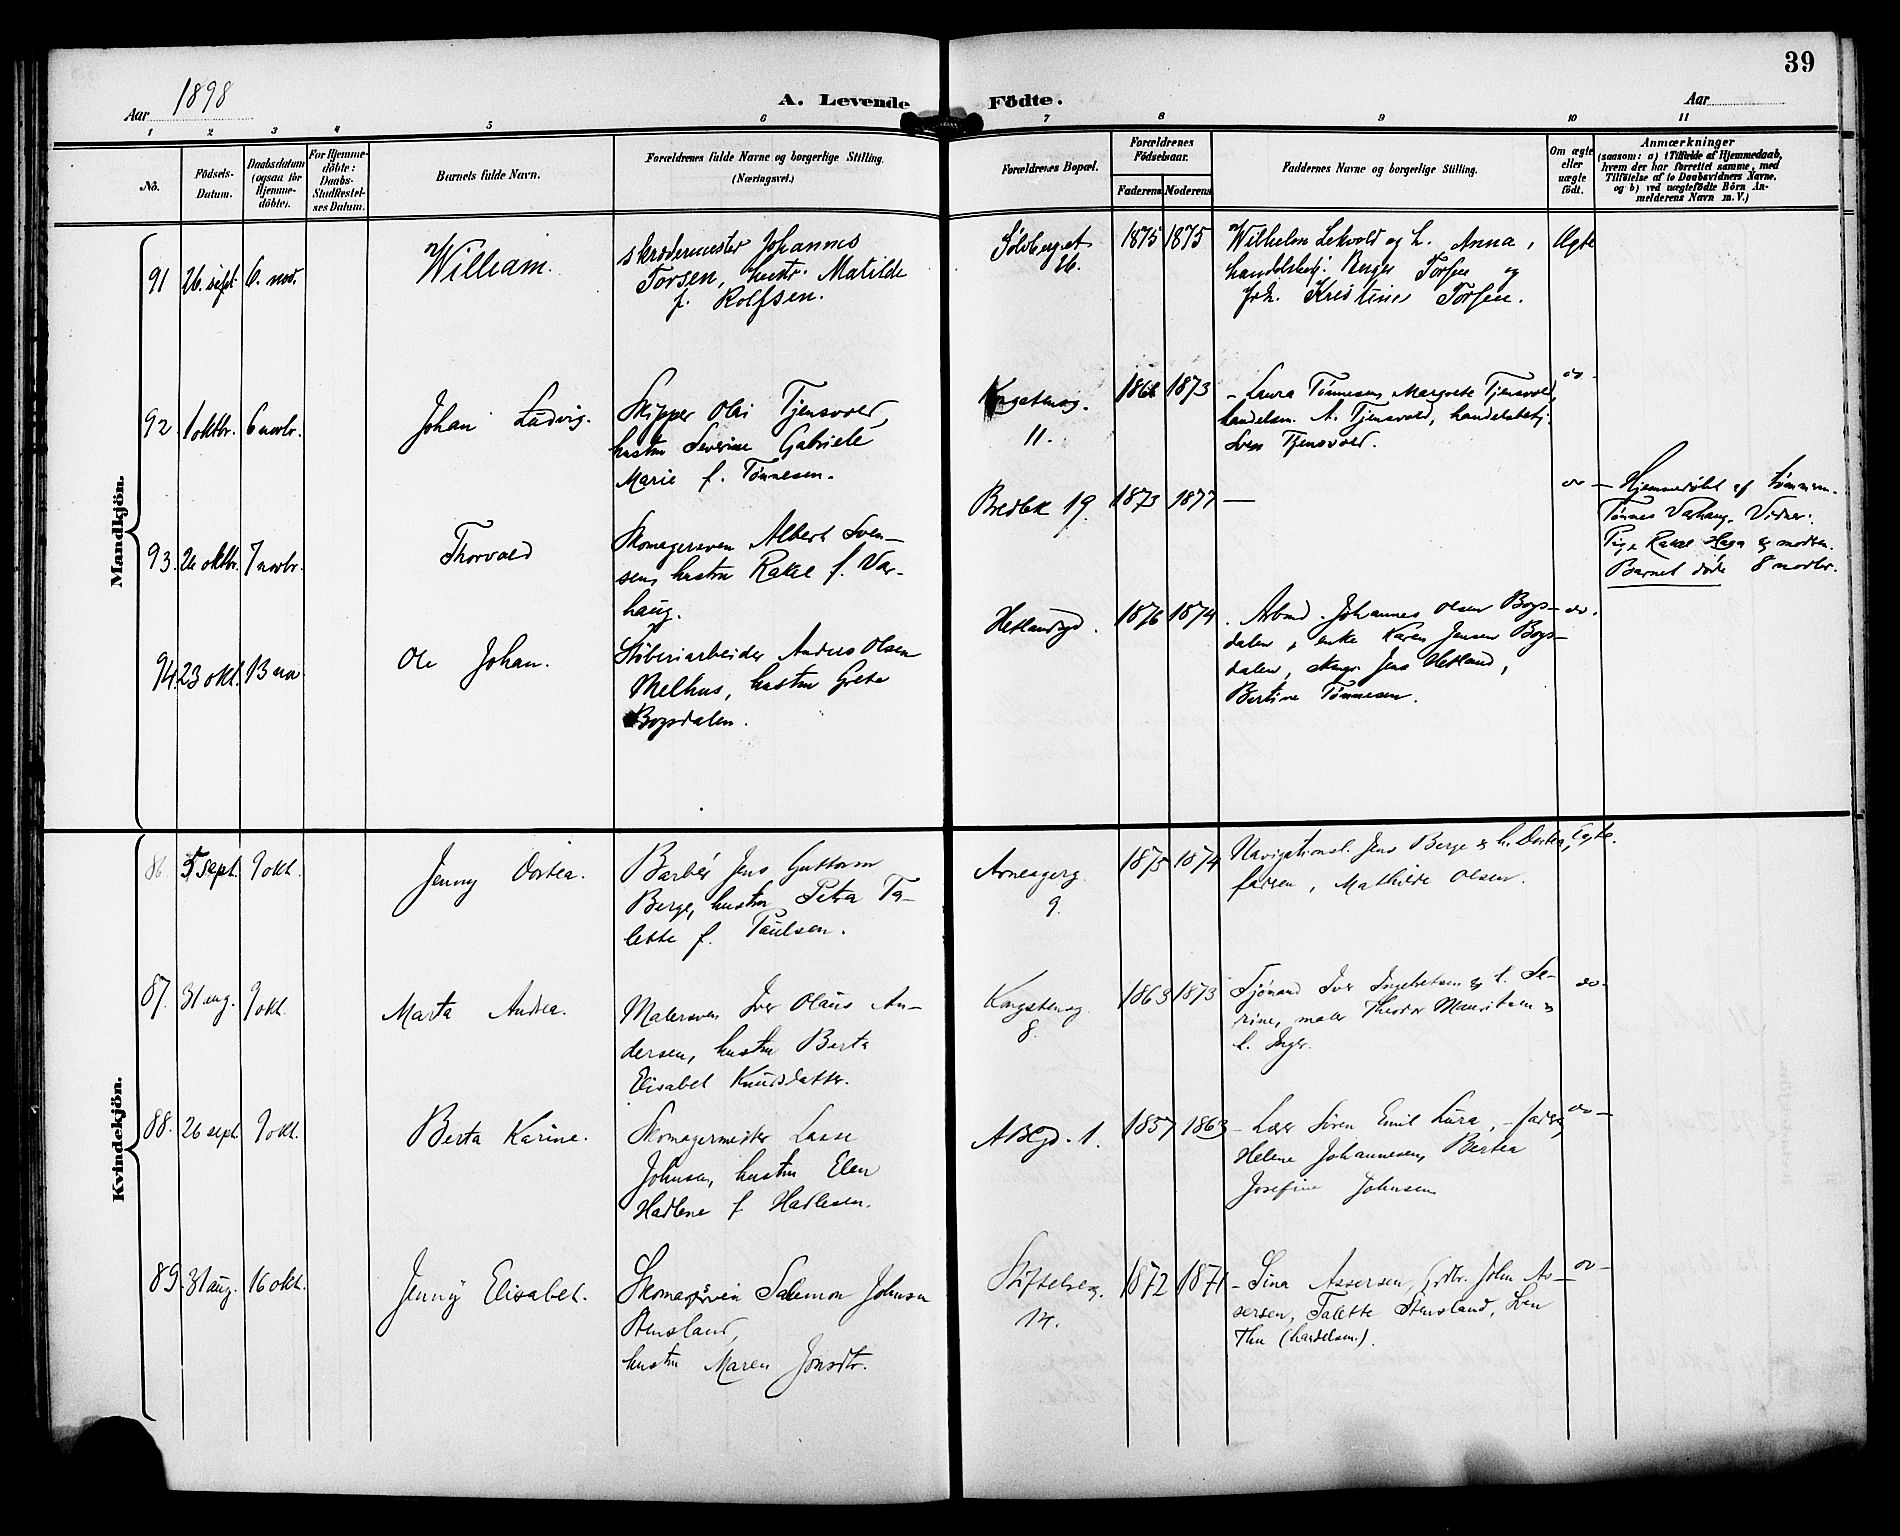 39
Aar 1898
A. Levende Födte.
Aar
1 2 3 4 5 6 7 8 9 10 11
Nô.
Födsels-Datum.
Daabsdatum (ogsaa for Hjemme-döbte).
For Hjemme-döbte: Daabs-Stadfæstel-ses Datum.
Barnets fulde Navn.
Forældrenes fulde Navne og borgerlige Stilling.
(Næringsvei.)
Forældrenes Bopæl.
Forældrenes Födselsaar.
Faderens Moderens
Faddernes Navne og borgerlige Stilling.
Om ægte eller uægte födt.
Anmærkninger
(saasom: a) i Tilfælde af Hjemmedaab,
hvem der har forrettet samme, med
Tilföielse af to Daabsvidners Navne.
og b) ved uægtefödte Börn An-
melderens Navn m. V.)
Mandkjön.
91 26. sept. 6. nov. William.
skrædermester Johannes
Torsen, hustr. Matilde
f. Rolfsen.
Sölvberget
26.
1875 1875
Wilhelm Lekvold og h. Anna,
handelsbetj. Berge Torsen og
Frk. Kristine Torsen.
Ægte
92 1 oktbr. 6 novbr. Johan Ludvig.
Skipper Olai Tjensvold,
hustru Severine Gabriele
Marie f. Tönnesen.
Kongstensg.
11.
1868 1873
- Laura Tönnesen, Margrete Tjensvold,
handelsm. A. Tjensvold, handelsbetj.
Sven Tjensvold.
do -
93. 26 oktbr. 7 novbr. Thorvald
Skomagersven Albert Sven-
sen, hustru Rakel f. Var-
haug.
Bredbk 19. 1873 1877 —
do — Hjemmedöbt af tömmerm.
Tönnes Varhaug. Vidner:
Pige Rakel Haga og moderen.
Barnet döde 8 novbr.
94. 23 okt. 13 nov Ole Johan.
Stöberiarbeider Anders Olsen
Melhus, hustru Grete
Bogsdalen.
Hetlandsgd. 1876 1874
Arbmd. Johannes Olsen Bogs-
dalen, enke Karen Jensen Bogs-
dalen, Jens Hetland,
Bertine Tönnesen.
do.
Kvindekjön.
86 5 sept. 9 okt. Jenny Dortea.
Barbér Jens Guttorm
Berge, hustru Petra Ta-
lette f. Paulsen.
Arneagerg.
9.
1875 1874
Navigationsl. Jens Berge & h. Dortea,
faderen, Mathilde Olsen.
Ægte.
87. 31 aug. 9 okt. Marta Andrea.
Malersven Iver Olaus An-
dersen, hustru Berta
Elisabet Knudsdatter.
Kongstensg.
8.
1863 1873
Sjömand Iver Ingebretsen & h. Se-
rine, maler Theodor Mauritsen &
h. Inger.
do-
88. 26 sept. 9 okt. Berta Karine.
Skomagermester Lasse
Johnsen, hustru Elen
Hadlene f. Hadlesen.
ABCgd. 1. 1857 1863
- Lærer Sören Emil Lura, - faderen,
Helene Johannesen, Bertea
Josefine Johnsen
do —
89. 31 aug. 16 okt. Jenny Elisabet.
Skomagersven Salemon Johnsen
Stensland,
hustru Maren Jonsdtr.
Stiftelseg.
14.
1872 1871
- Sina Assersen, Grdbr. John As-
sersen, Talette Stensland, Sven
Thu (handelsm.).
do -